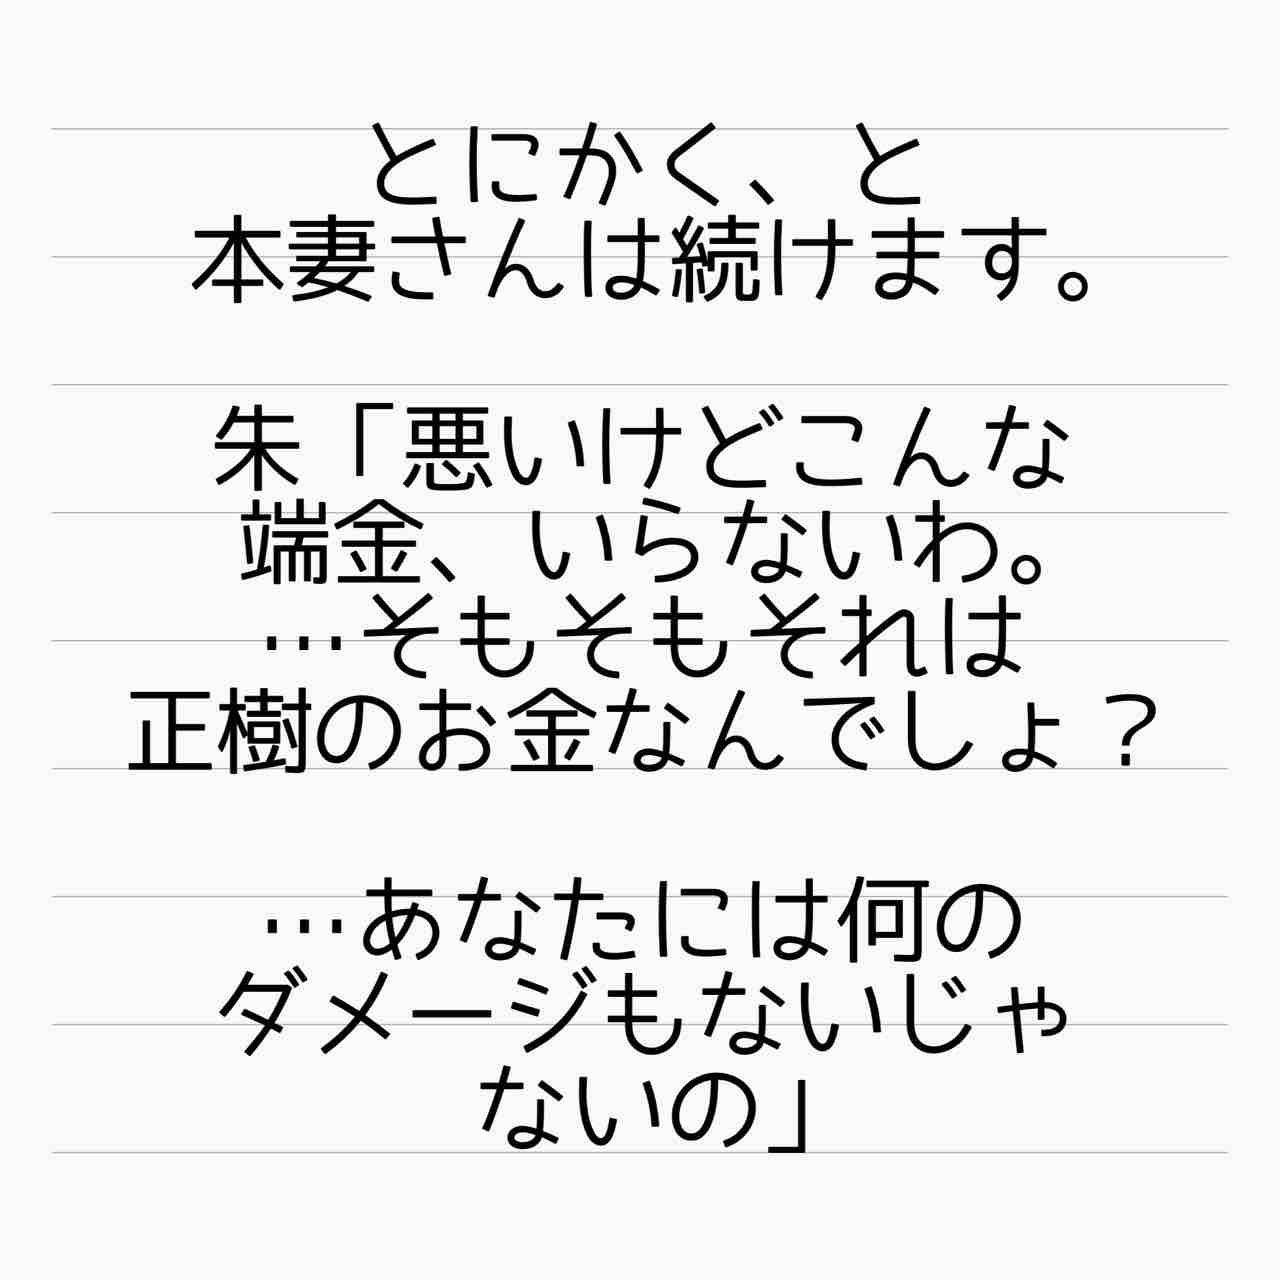 とにかく、と
本妻さんは続けます。
朱「悪いけどこんな
端金、いらないわ。
…そもそもそれは
正樹のお金なんでしょ？
…あなたには何の
ダメージもないじゃ
ないの」